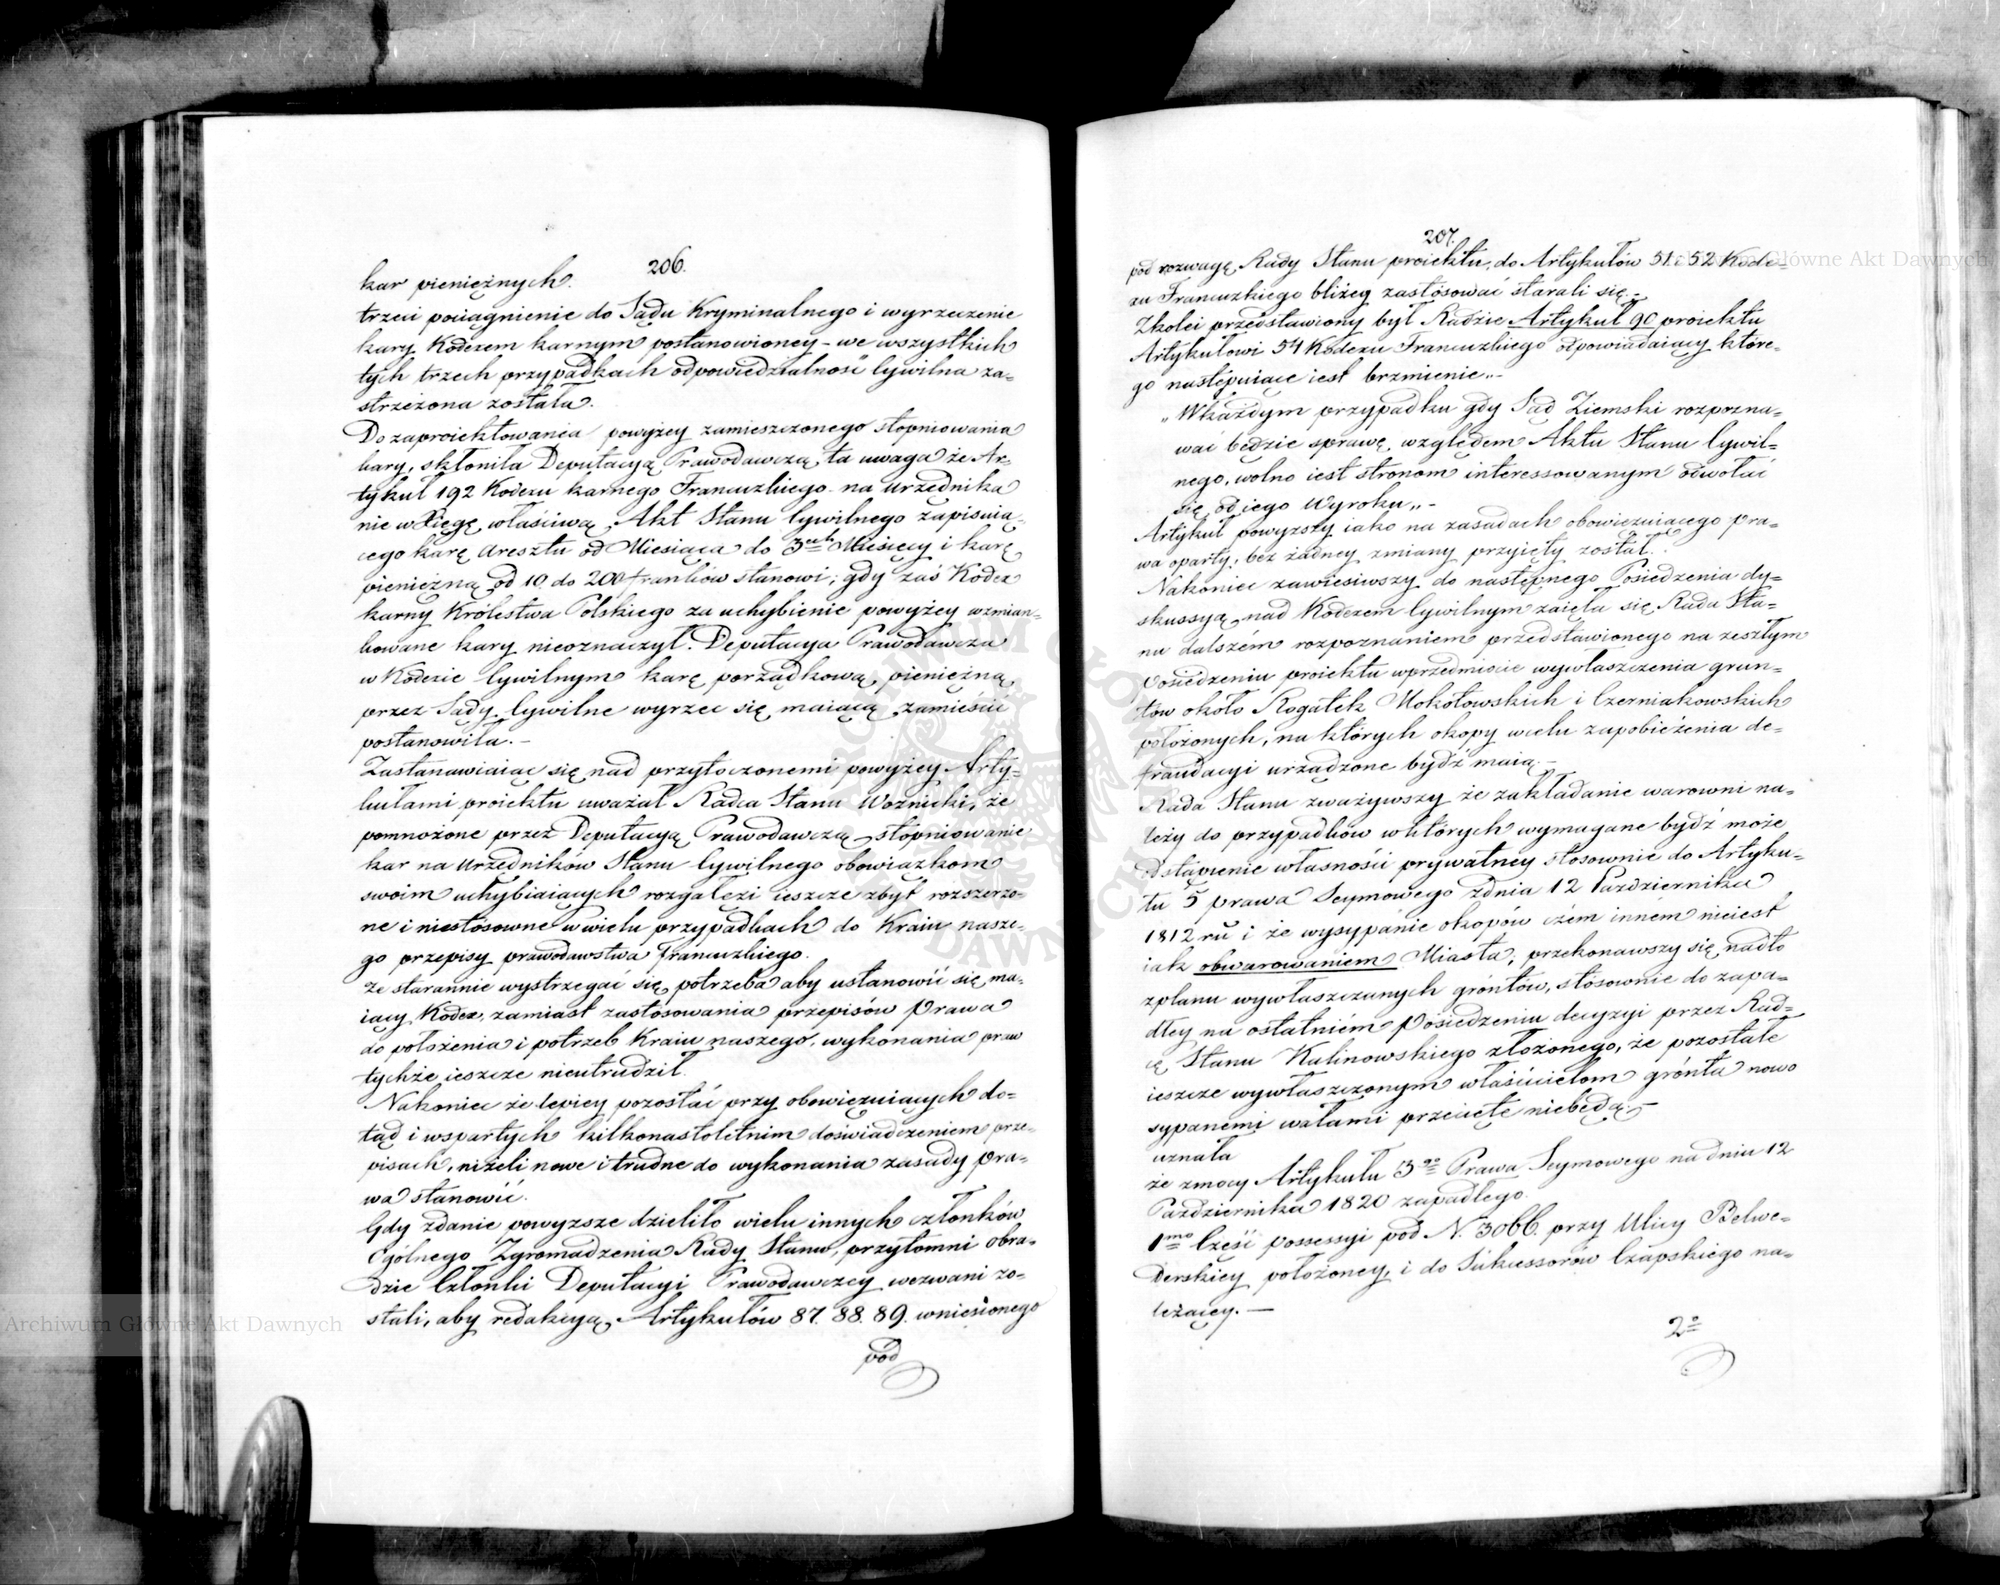 206.
kar pieniężnych.
trzeci pociągnienie do Sądu Kryminalnego i wyrzeczenie
kary Kodexem karnym postanowioney – we wszystkich
tych trzech przypadkach odpowiedzialność Cywilna za=
strzeżona została.
Do zaproiektowania powyżey zamieszczonego stopniowania
kary, skłoniła Deputacyą Prawodawczą ta uwaga że Ar=
tykuł 192 Kodexu karnego Francuzkiego na urzędnika
nie w Xięgę właściwą Akt Stanu Cywilnego zapisuią=
cego karę aresztu od Miesiąca do 3ech Miesięcy i karę
pieniężną od 10 do 200 franków stanowi; gdy zaś Kodex
karny Królestwa Polskiego za uchybienie powyżey wzmian=
kowane kary nieoznaczył. Deputacya Prawodawcza
w Kodexie Cywilnym karę porządkową, pieniężną
przez Sądy Cywilne wyrzec się maiącą zamieścić
postanowiła. –
Zastanawiaiąc się nad przytoczonemi powyżey Arty=
kułami proiektu uważał Radca Stanu Woźnicki, że
pomnożone przez Deputacyą Prawodawczą stopniowanie
kar na urzędników Stanu Cywilnego obowiązkom
swoim uchybiaiących rozgałęzi ieszcze zbyt rozszerzo=
ne i niestósowne w wielu przypadkach do Kraiu nasze=
go przepisy prawodawstwa francuzkiego.
że starannie wystrzegać się potrzeba aby ustanowić się ma=
iący Kodex, zamiast zastósowania przepisów Prawa
do położenia i potrzeb Kraiu naszego, wykonania praw
tychże ieszcze nieutrudził.
Nakoniec że lepiey pozostać przy obowięzuiących do=
tąd i wspartych kilkonastoletnim doświadczeniem prze=
pisach, niżeli nowe i trudne do wykonania zasady pra=
wa stanowić.
Gdy zdanie powyższe dzieliło wielu innych członków
Ogólnego Zgromadzenia Rady Stanu, przytomni obra=
dzie Członki Deputacyi Prawodawczey wezwani zo=
stali, aby redakcyą Artykułów 87. 88. 89. wniesionego
pod
207.
pod rozwagę Rady Stanu proiektu, do Artykułów 51 i 52 Kode=
xu Francuzkiego bliżey zastósować starali się. –
Zkolei przedstawiony był Radzie Artykuł 90 proiektu
Artykułowi 54 Kodexu Francuzkiego odpowiadaiący które=
go następuiące iest brzmienie. –
„Wkażdym przypadku gdy Sąd Ziemski rozpozna=
wać będzie sprawę względem Aktu Stanu Cywil=
nego, wolno iest stronom interessowanym odwołać
się od iego Wyroku„ –
Artykuł powyższy iako na zasadach obowięzuiącego pra=
wa oparty, bez żadney zmiany przyięty został. –
Nakoniec zawiesiwszy do następnego Posiedzenia dy=
skussyą nad Kodexem Cywilnym zaięła się Rada Sta=
nu dalszém rozpoznaniem przedstawionego na zeszłym
Posiedzeniu proiektu wprzedmiocie wywłaszczenia grun=
tów około Rogatek Mokotowskich i Czerniakowskich
położonych, na których okopy wcelu zapobieżenia de=
fraudacyi urządzone bydź maią. –
Rada Stanu zważywszy że zakładanie warowni na=
leży do przypadków wktórych wymagane bydź może
Odstąpienie własności prywatney stosownie do Artyku=
łu 5 prawa Seymowego zdnia 12 Października
1812 rū i że wysypanie okopów czém inném nieiest
iak obwarowaniem Miasta; przekonawszy się nadto
zplanu wywłaszczanych gróntów, stósownie do zapa=
dłey na ostatniém Posiedzeniu decyzyi przez Rad=
cę Stanu Kalinowskiego złożonego, że pozostałe
ieszcze wywłaszczonym właścicielom grónta nowo
sypanemi wałami przecięte niebędą, –
uznała
że zmocy Artykułu 3go Prawa Seymowego na dniu 12
Października 1820 zapadłego.
1mo Część possessyi pod N. 3066. przy Ulicy Belwe=
derskiey położoney, i do Sukcessorów Czapskiego na=
leżącey. –
2o
Archiwum Główne Akt Dawnych